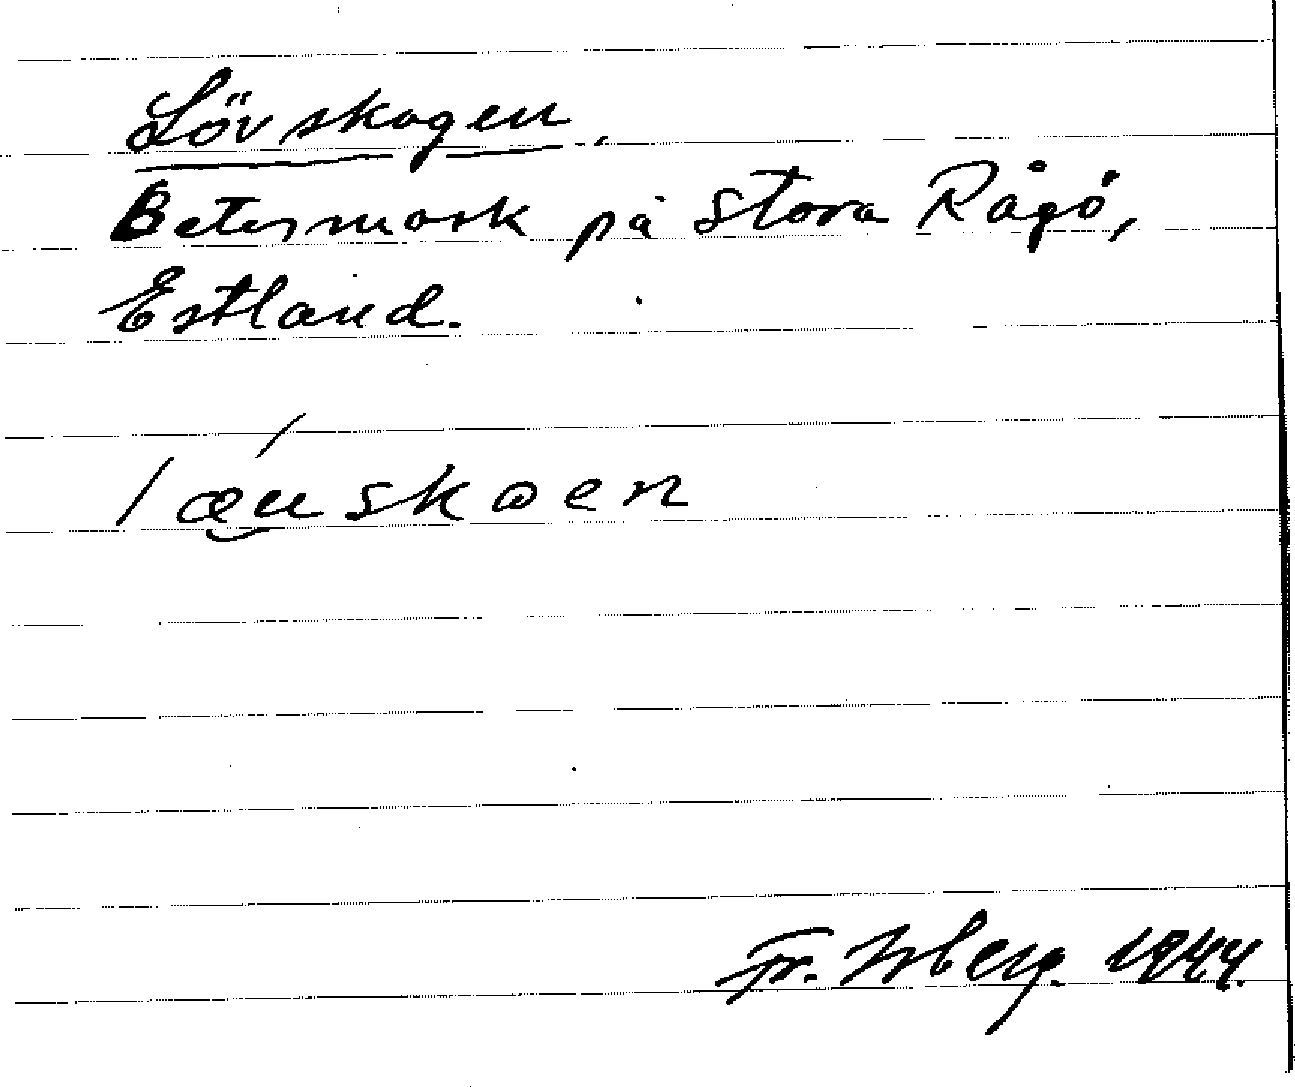 Lövskogen,
Betesmark på Stora Rågö,
Estland.
lǽu̯skoen
Fr. Isberg. 1944.